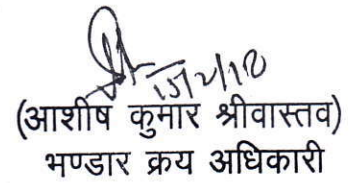 15/2/18
(आशीष कुमार श्रीवास्तव)
भण्डार क्रय अधिकारी